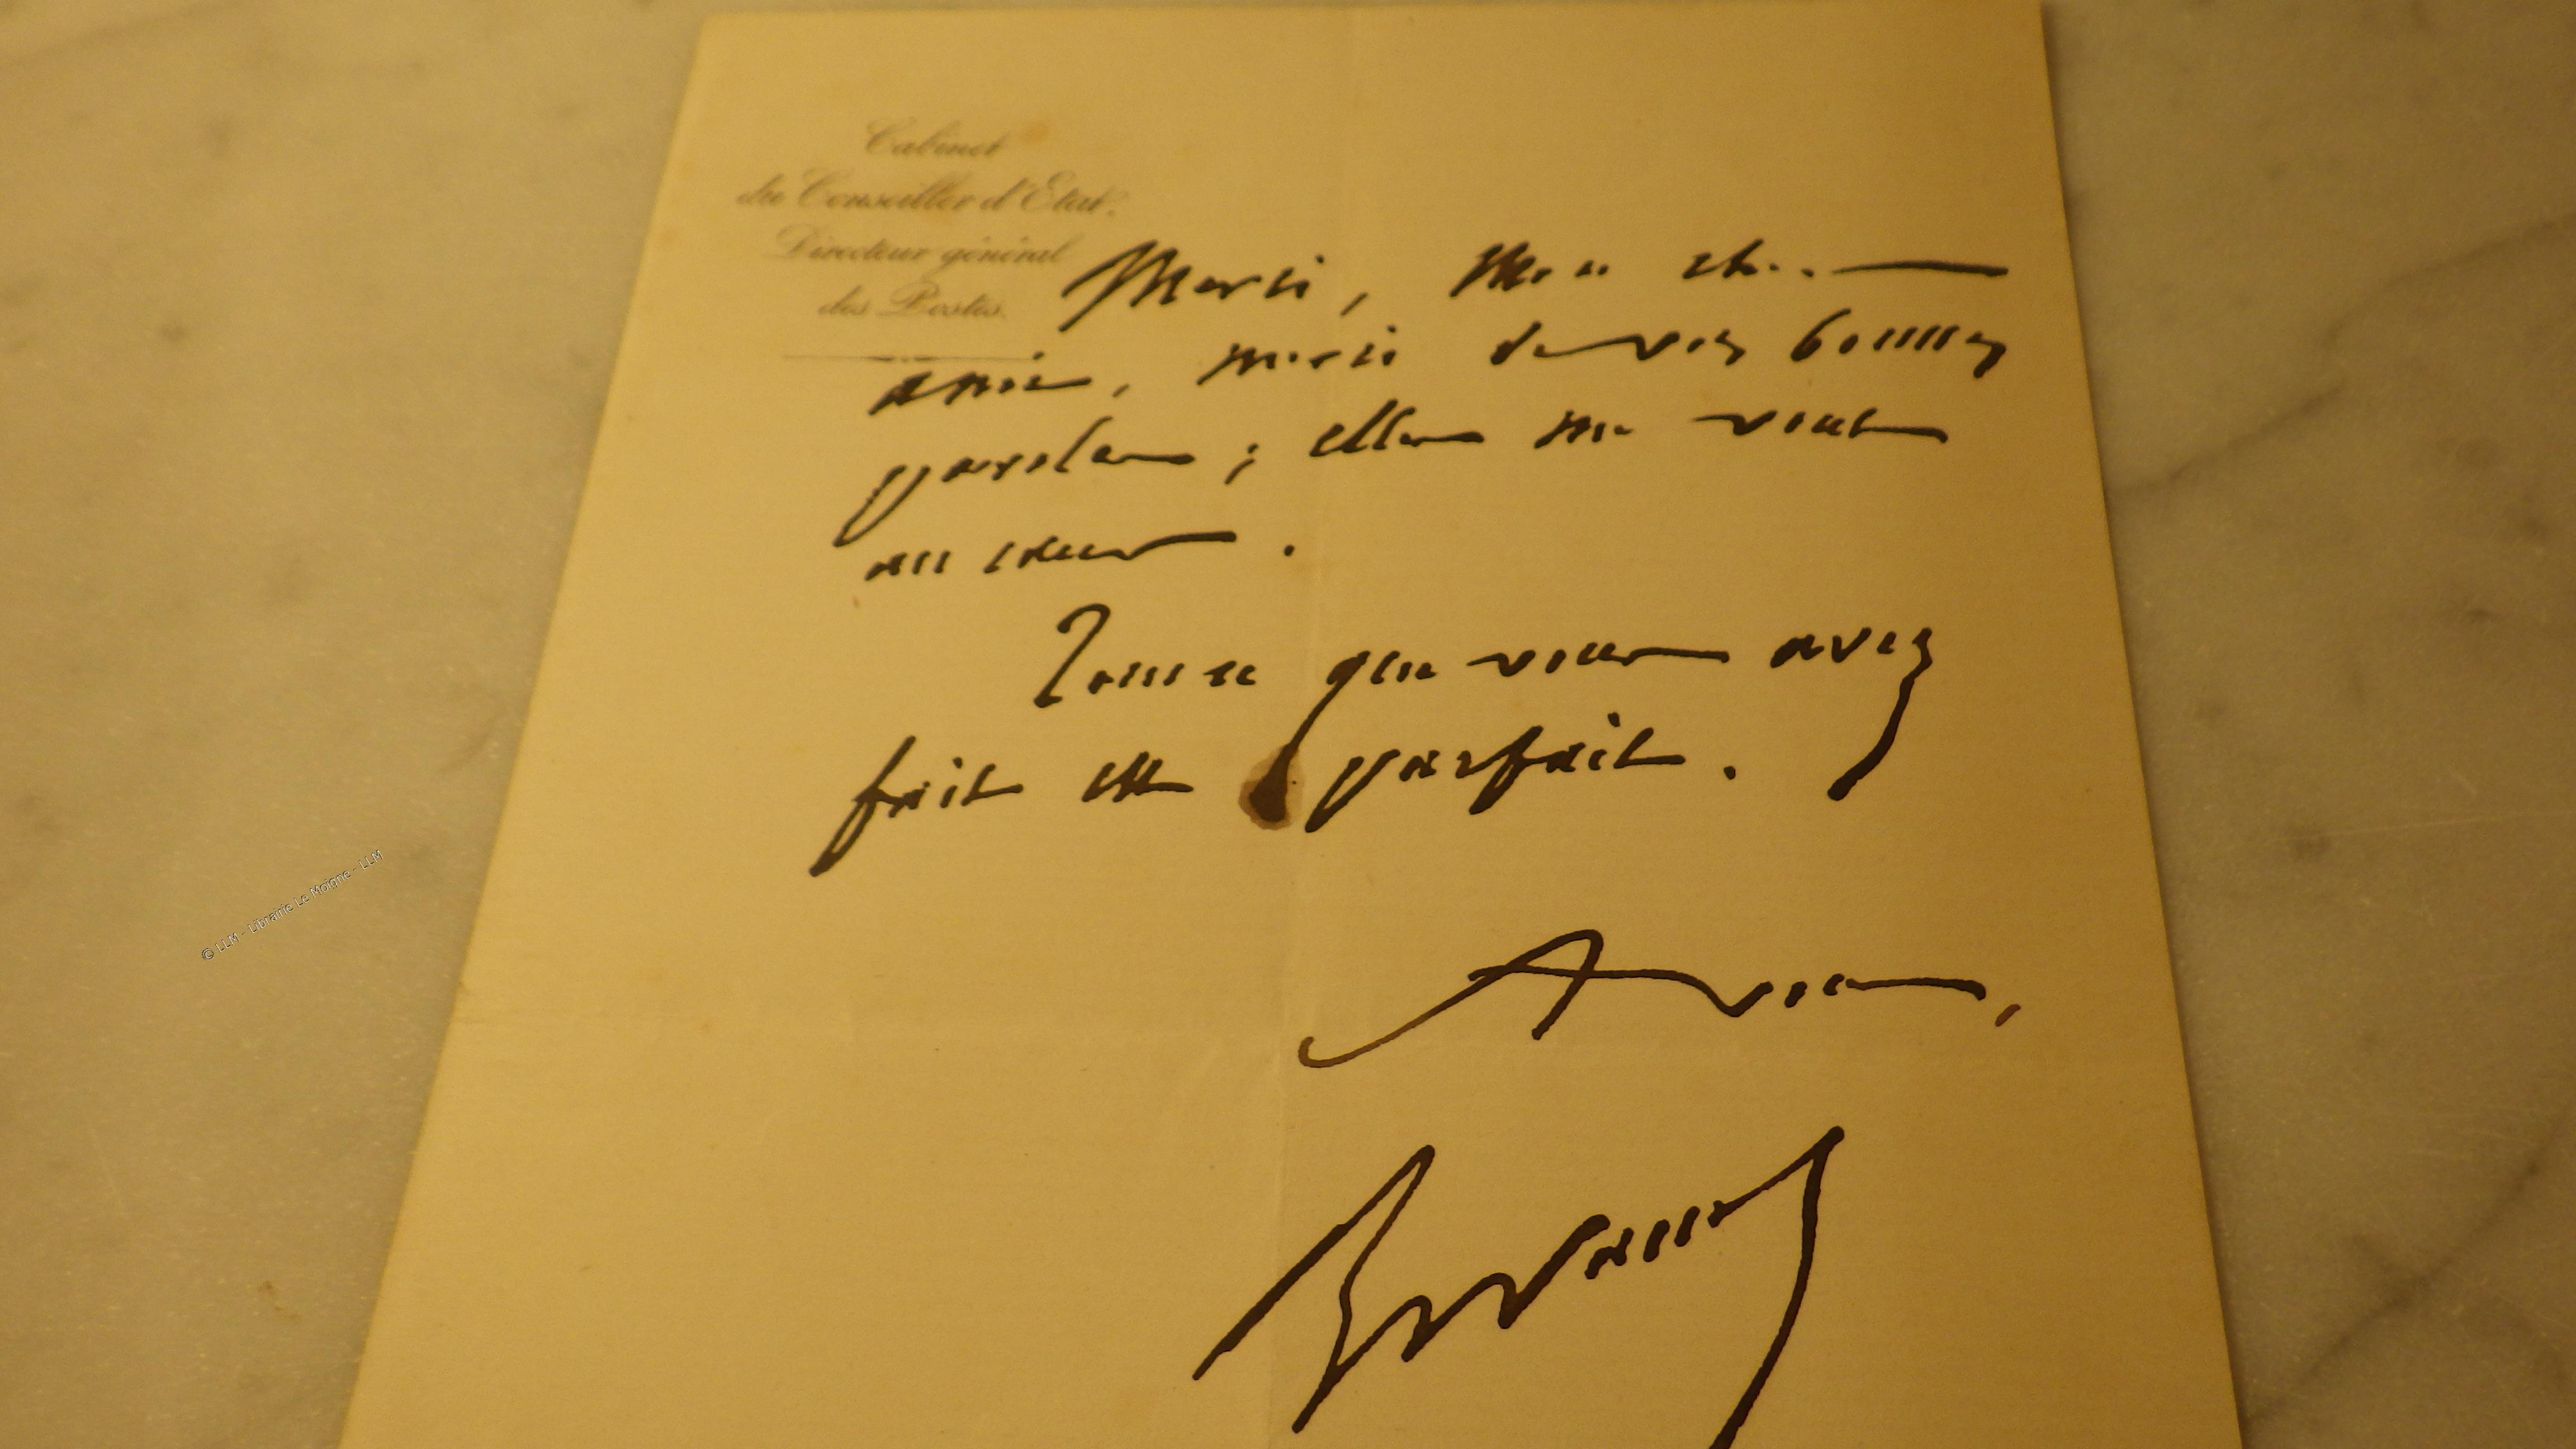 Cabinet
du Conseiller d'Etat.
Directeur général
des Postes.
Merci, mon cher
ami, merci de vos bonnes
paroles; elles me vont
au cœur.
Tout ce que vous avez
fait est parfait.
© LLM - Librairie Le Moigne - LLM